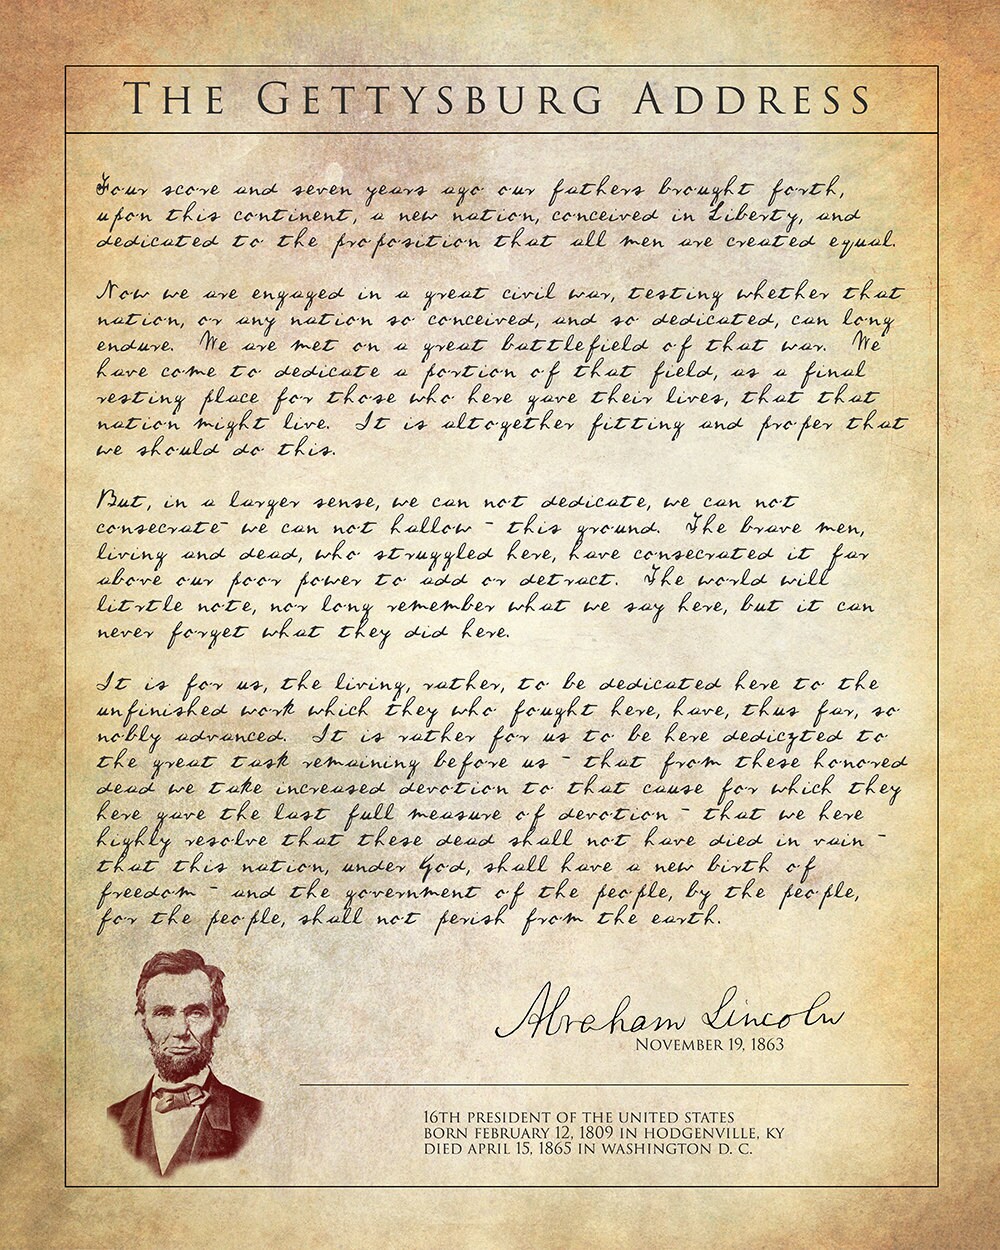 The Gettysburg Address
Four score and seven years ago our fathers brought forth,
upon this continent, a new nation, conceived in Liberty, and
dedicated to the proposition that all men are created equal.
Now we are engaged in a great civil war, testing whether that
nation, or any nation so conceived, and so dedicated, can long
endure. We are met on a great battlefield of that war. We
have come to dedicate a portion of that field, as a final
resting place for those who here gave their lives, that that
nation might live. It is altogether fitting and proper that
we should do this.
But, in a larger sense, we can not dedicate, we can not
consecrate - we can not hallow - this ground. The brave men,
living and dead, who struggled here, have consecrated it far
above our poor power to add or detract. The world will
litrtle note, nor long remember what we say here, but it can
never forget what they did here.
It is for us, the living, rather, to be dedicated here to the
unfinished work which they who fought here, have, thus far, so
nobly advanced. It is rather for us to be here dediczted to
the great task remaining before us - that from these honored
dead we take increased devotion to that cause for which they
here gave the last full measure of devotion - that we here
highly resolve that these dead shall not have died in vain -
that this nation, under God, shall have a new birth of
freedom - and the government of the people, by the people,
for the people, shall not perish from the earth.
Abraham Lincoln
November 19, 1863
16th President of the United States
Born February 12, 1809 in Hodgenville, KY
Died April 15, 1865 in Washington D. C.